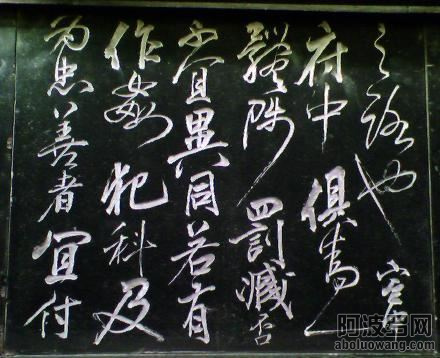 之路也宮中
府中俱為一
體陟罰臧否
不宜異同若有
作姦犯科及
為忠善者宜付
阿波罗网
aboluowang.com